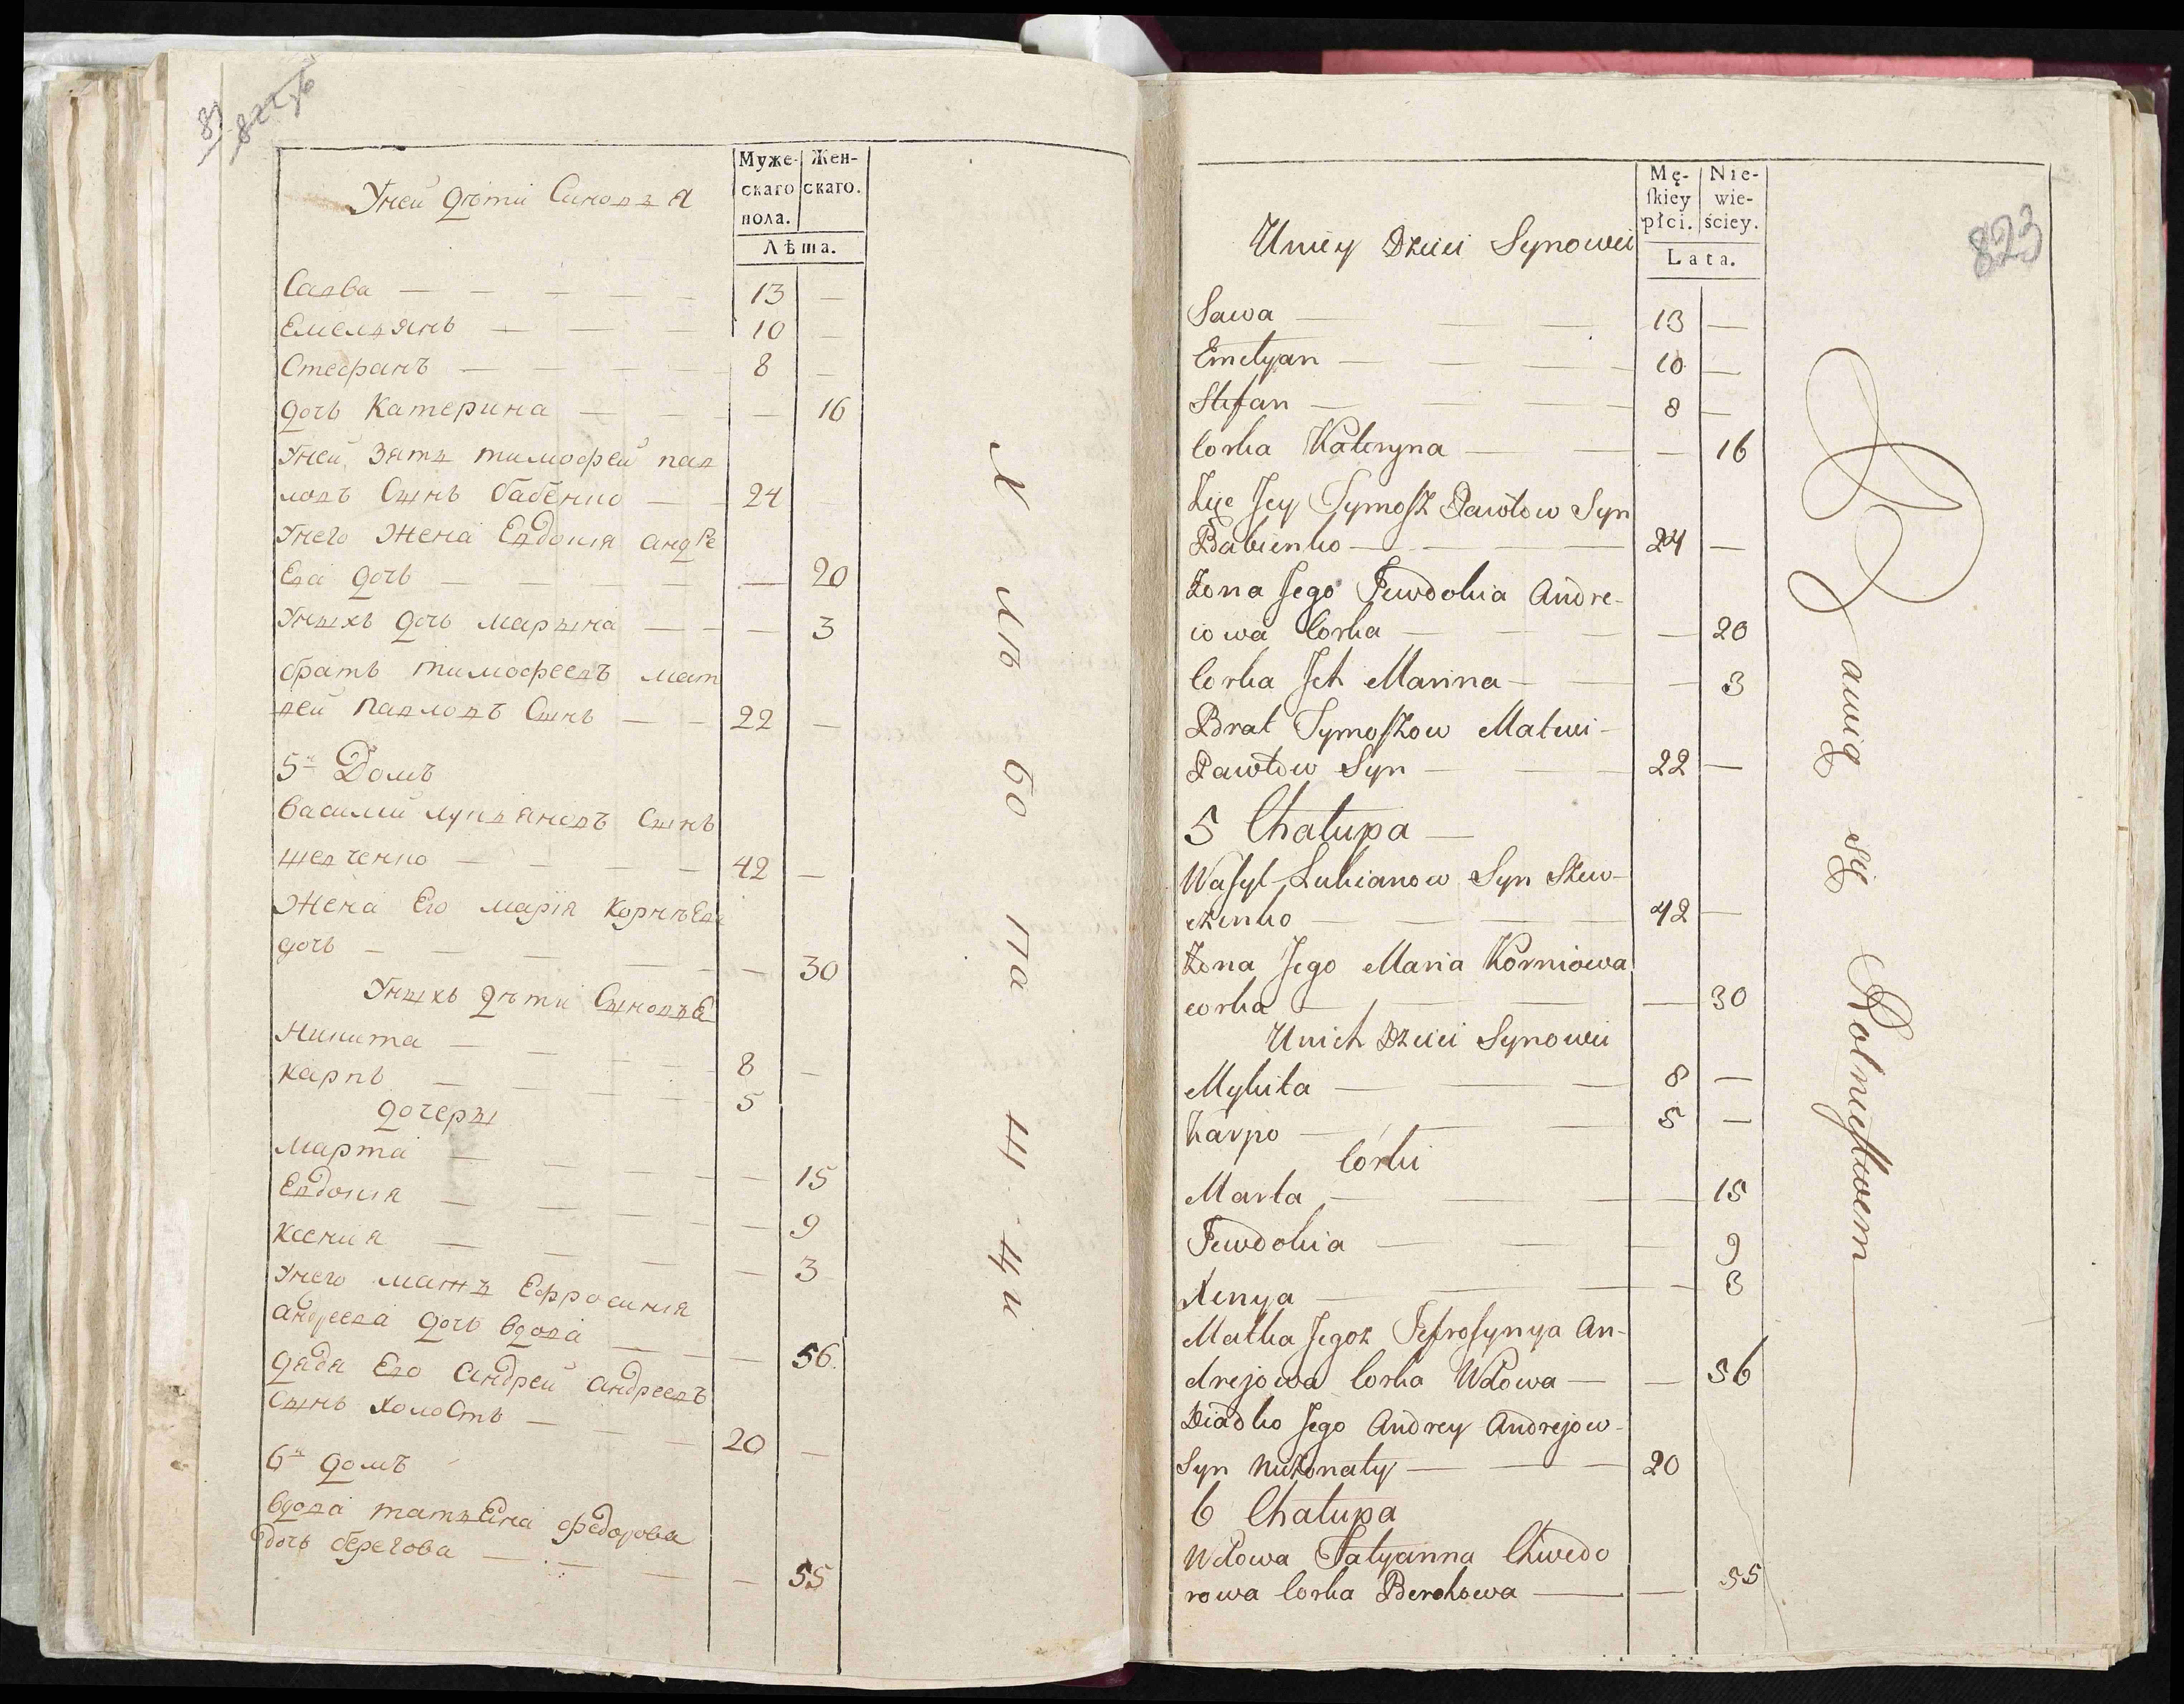 Муже-
скаго
пола.
Жен-
скаго.
Лѣта.
Уней дѣти Синовья
Савва — 13 —
Емельянъ — 10 —
Стефанъ — 8 —
дочь Катерина — — 16
Уней зять тимофей пав
ловъ Сынъ бабенко — 24
Унего Жена Евдокия андре
Ева дочь — — 20
Унихъ дочь марына — — 3
братъ тимофеевъ мат
вей павловъ Сынъ — 22 —
5й Домъ
василий лукьяновъ Сынъ
шевченко — 42 —
Жена Его марія Корнѣева
дочь — — 30
Уныхъ дѣти Сыновьѣ
Никита — 8 —
Карпъ — 5
дочеры
Марта — — 15
Евдокия — — 9
Ксения — — 3
Унего мать Ефросиния
андреева дочь вдова — — 56.
дядя Его андрей андреевъ
Сынъ холостъ — 20 —
6й домъ
вдова татьяна федорова
дочь берегова — — 55
Хлѣбопашци
823
Mę-
skiey
płci.
Nie-
wie-
ściey.
Lata.
Uniey Dzieci Synowei
Sawa — 13 —
Emelyan — 10 —
Stefan — 8 —
Corka Kateryna — — 16
Zięc Jey Tymosz Pawłow Syn
Babienko — 24 —
Żona Jego Jewdokia Andre-
iowa Corka — — 20
Corka Ich Marina — — 3
Brat Tymoszow Matwi-
Pawłow Syn — 22 —
5 Chałupa —
Wasyl Lukianow Syn Szew-
czenko — 42 —
Żona Jego Maria Korniowa
corka — — 30
Unich Dzieci Synowei
Mykita — 8 —
Karpo — 5 —
Corki
Marta — — 15
Jewdokia — — 9
Xenya — — 3
Matka Jegoz Jefrosynya An-
drejowa Corka Wdowa — — 56
Diadko Jego Andrey Andrejow-
Syn nieżonaty — 20
6 Chałupa
Wdowa Tatyanna Chwedo
rowa Corka Berehowa — — 55
Bawią się Rolnictwem